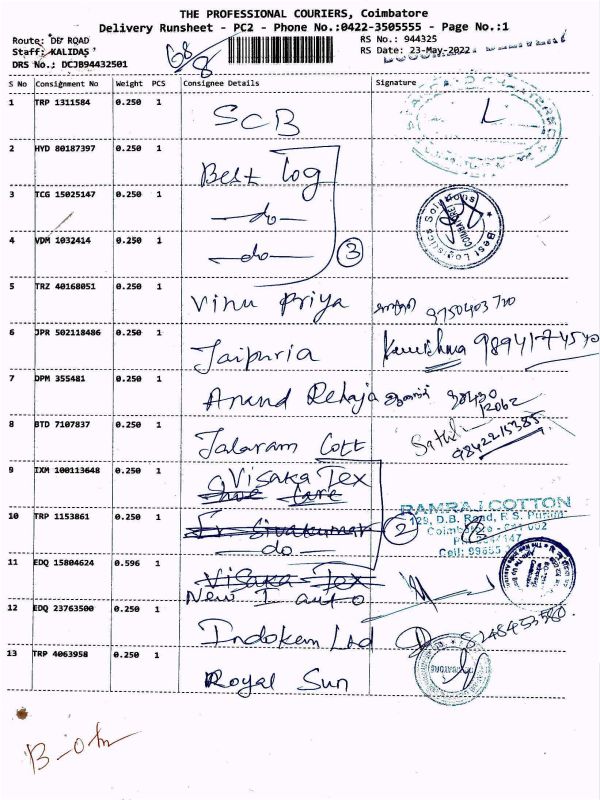 THE PROFESSIONAL COURIERS, Coimbatore
Delivery Runsheet - PC2 - Phone No.:0422-3505555 - Page No.:1
Route: DB ROAD
RS No.: 944325
Staff: KALIDAS
RS Date: 23-May-2022
DRS No.: DCJB94432501
68/8
S No Consignment No Weight PCS Consignee Details Signature
1 TRP 1311584 0.250 1 SCB
2 HYD 80187397 0.250 1 Best log
3 TCG 15025147 0.250 1 —do—
4 VDM 1032414 0.250 1 —do— 3
Best Logistics Solutions
COIMBATORE
5 TRZ 40168051 0.250 1 Vinu Priya
6 JPR 502118486 0.250 1 Jaipuria 9894174540
7 DPM 355481 0.250 1 Anand Rehaja
8 BTD 7107837 0.250 1 Jalaram Cott 9842215385
9 IXM 100113648 0.250 1 Visaka Tex
Save Care
10 TRP 1153861 0.250 1 Sivakumar
—do— 2
RAMRAJ COTTON
129, D.B. Road, R.S. Puram
11 EDQ 15804624 0.596 1 Visaka Tex
New I auto
12 EDQ 23763500 0.250 1 Indokem Ltd
13 TRP 4063958 0.250 1 Royal Sun